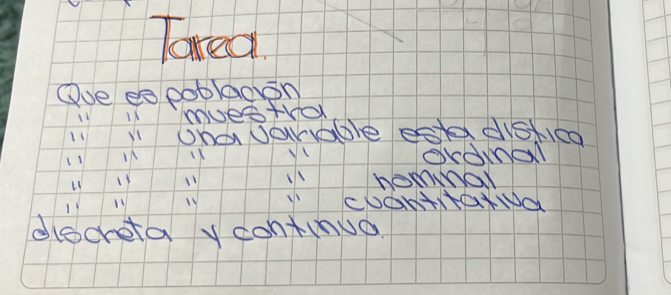 Tarea.
Que es población
" " muestra
" " una variable esta distica
" " " " ordinal
" " " " nominal
" " " " cuantitativa
discreta y continua.